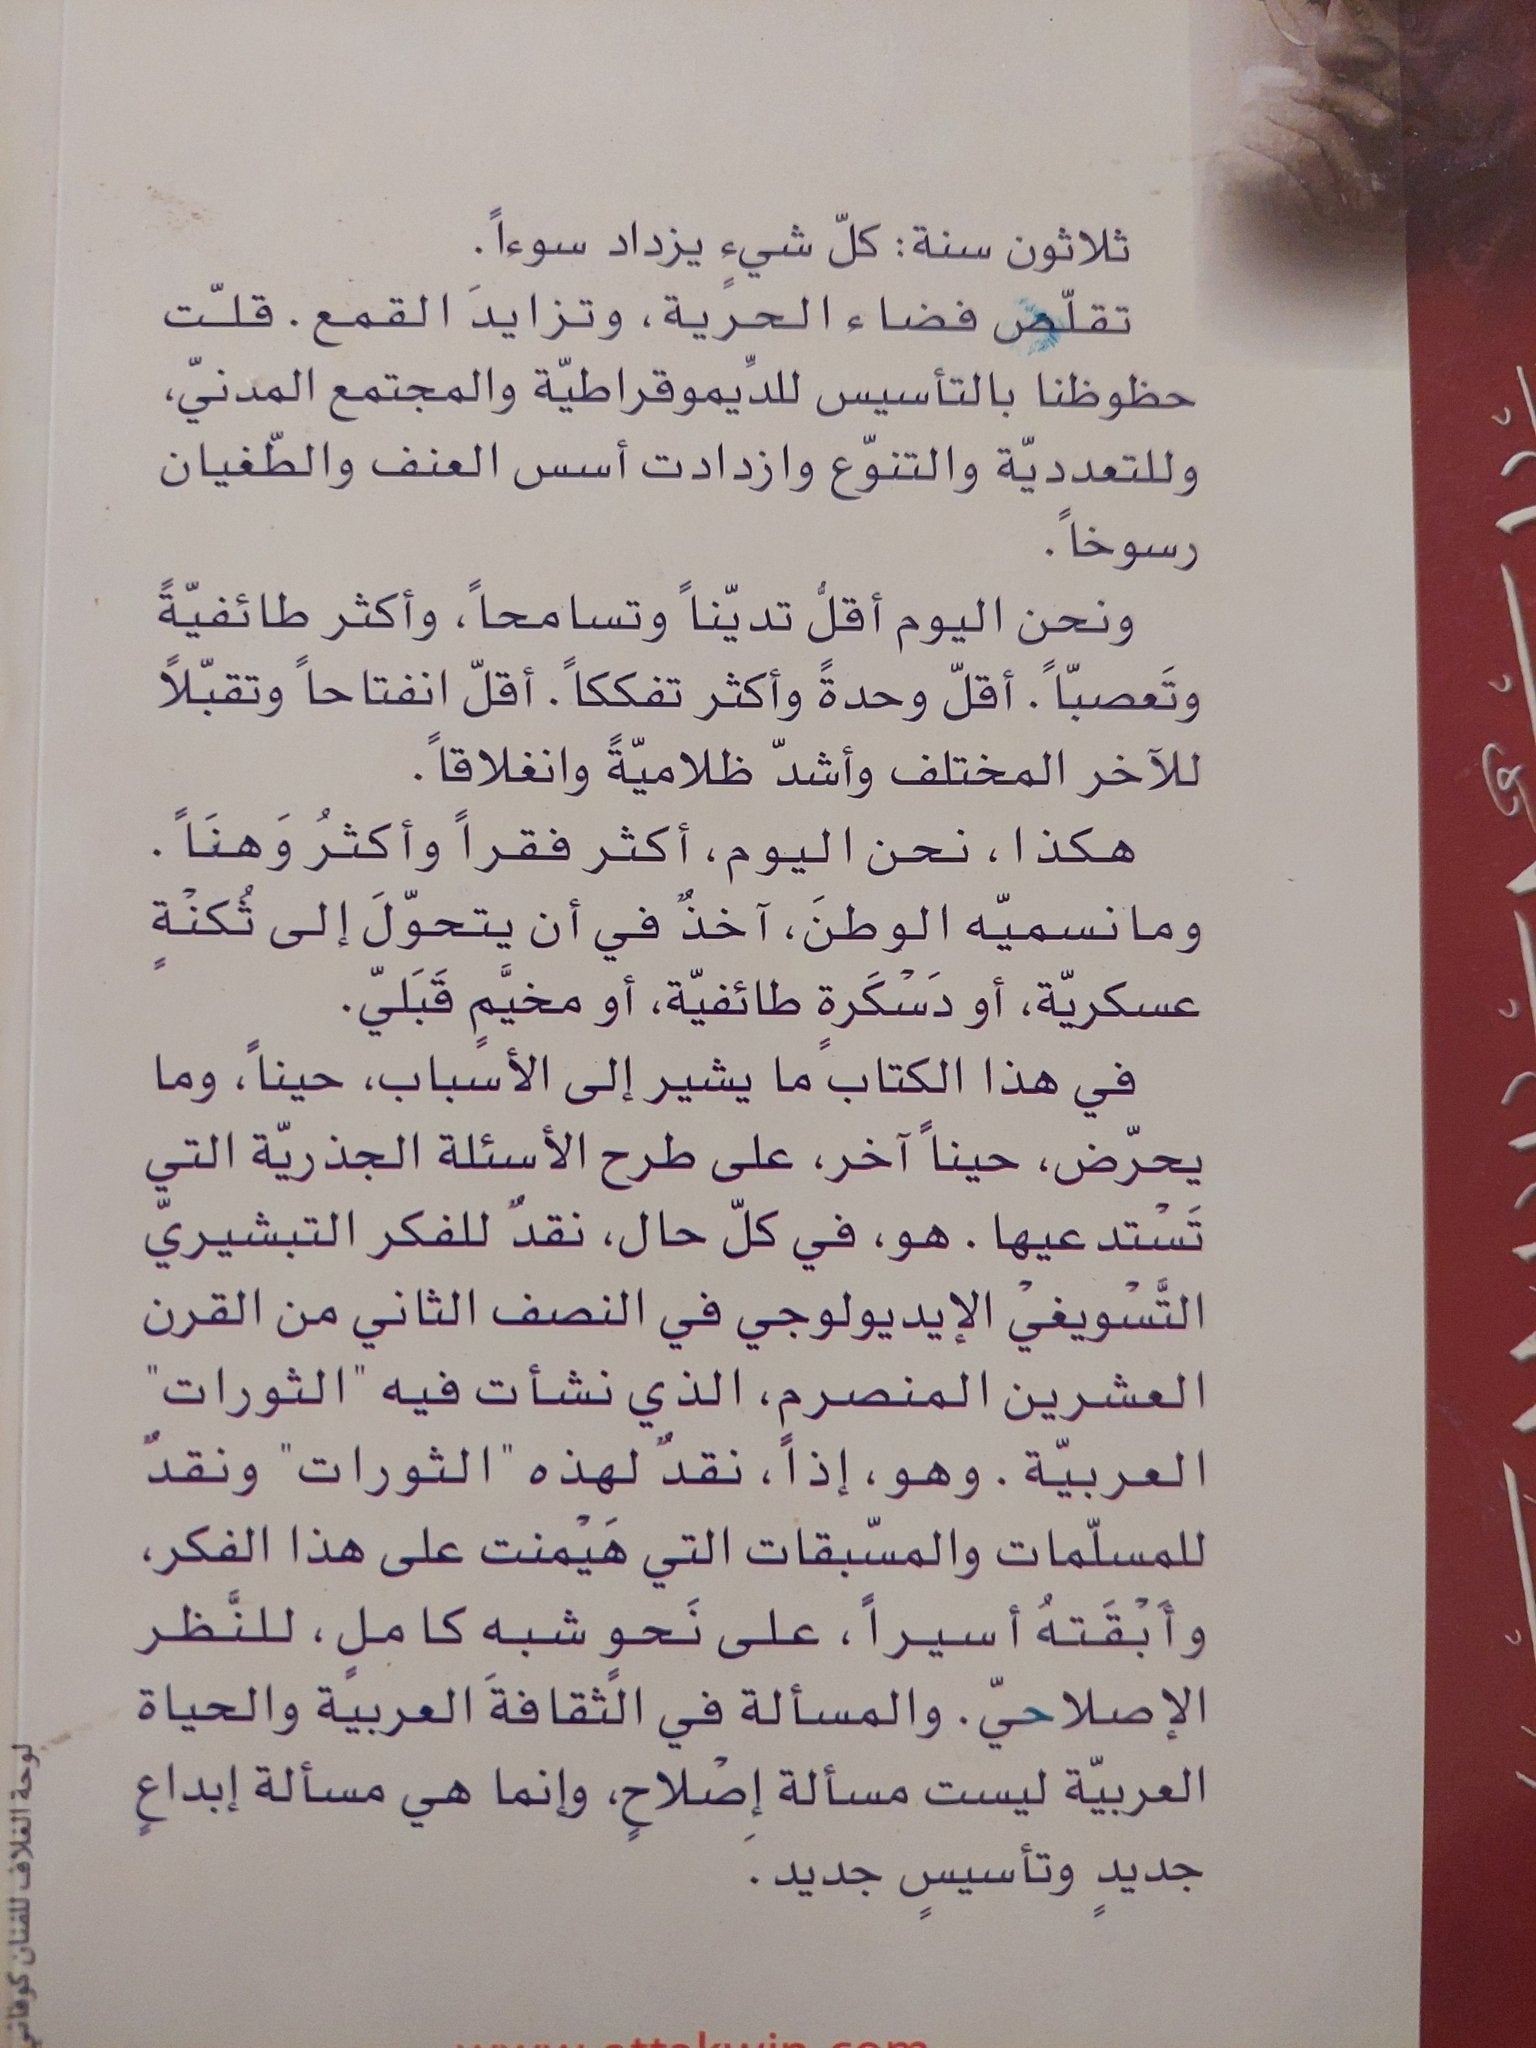 ثلاثون سنة: كلّ شيءٍ يزداد سوءاً.
تقلّص فضاء الحرية، وتزايدَ القمع. قلّت
حظوظنا بالتأسيس للدِّيموقراطيّة والمجتمع المدنيّ،
وللتعدديّة والتنوّع وازدادت أسس العنف والطّغيان
رسوخاً.
ونحن اليوم أقلُّ تديّناً وتسامحاً، وأكثر طائفيّةً
وتَعصبّاً. أقلّ وحدةً وأكثر تفككاً. أقلّ انفتاحاً وتقبّلاً
للآخر المختلف وأشدّ ظلاميّةً وانغلاقاً.
هكذا، نحن اليوم، أكثر فقراً وأكثرُ وَهنَاً.
وما نسميّه الوطنَ، آخذٌ في أن يتحوّلَ إلى ثُكنْةٍ
عسكريّة، أو دَسْكَرةٍ طائفيّة، أو مخيَّمٍ قَبَليّ.
في هذا الكتاب ما يشير إلى الأسباب، حيناً، وما
يحرّض، حيناً آخر، على طرح الأسئلة الجذريّة التي
تَسْتدعيها. هو، في كلّ حال، نقدٌ للفكر التبشيريّ
التَّسْويغيْ الإيديولوجي في النصف الثاني من القرن
العشرين المنصرم، الذي نشأت فيه "الثورات"
العربيّة. وهو، إذاً، نقدٌ لهذه "الثورات" ونقدٌ
للمسلّمات والمسّبقات التي هَيْمنت على هذا الفكر،
وأَبْقَتهُ أسيراً، على نَحوٍ شبه كاملٍ، للنَّظر
الإصلاحيّ. والمسألة في الثّقافة العربيّة والحياة
العربيّة ليست مسألة إِصْلاحٍ، وإنما هي مسألة إبداعٍ
جديدٍ وتأسيسٍ جديد.
لوحة الغلاف للفنان